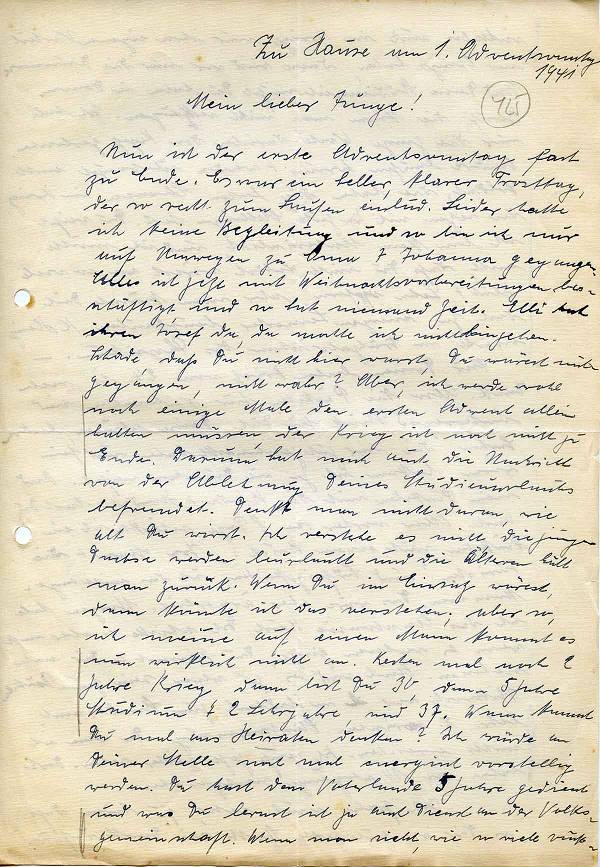 Zu Hause am 1. Adventsonntg
1941
145
Mein lieber Junge!
Nun ist der erste Adventsonntag fast
zu Ende. Es war ein heller, klarer Frosttag,
der so recht zum Laufen einlud. Leider hatte
ich keine Begleitung und so bin ich nur
auf Umwegen zu Anna & Johanna gegangen.
Alles ist jetzt mit Weihnachtsvorbereitungen bes-
chäftigt und so hat niemand Zeit. Elli hat
ihren Josef da, da mochte ich nicht hingehen.
Schade, daß Du nicht hier warst, Du wärest mit-
gegangen, nicht wahr? Aber, ich werde wohl
noch einige Male den ersten Advent allein
halten müssen, der Krieg ist noch nicht zu
Ende. Darum hat mich auch die Nachricht
von der Ablehnung Deines Studienurlaubs
befremdet. Denkt man nicht daran, wie
alt Du wirst. Ich verstehe es nicht, die jungen
Dachse werden beurlaubt und die Älteren hält
man zurück. Wenn Du im Einsatz wärest,
dann könnte ich das verstehen, aber so,
ich meine auf einen Mann kommt es
nun wirklich nicht an. Rechne mal noch 2
Jahre Krieg, dann bist Du 30, dann 5 Jahre
Studium & 2 Lehrjahre, sind 37. Wann kannst
Du mal ans Heiraten denken? Ich würde an
Deiner Stelle noch mal energisch vorstellig
werden. Du hast dem Vaterlande 5 Jahre gedient
und was Du lernst ist ja auch Dienst an der Volks-
gemeinschaft. Wenn man sieht, wie so viele